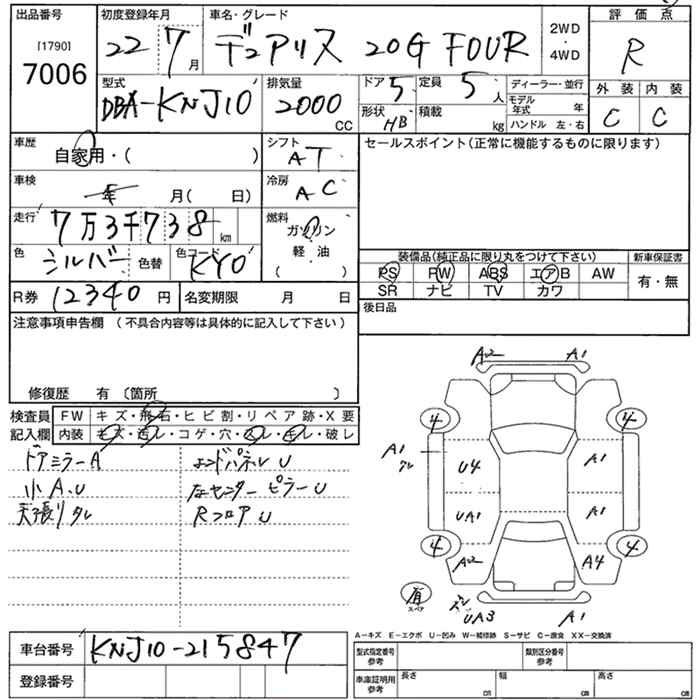 出品番号 初度登録年月 車名・グレード 2WD・4WD 評価点
[1790] 7006 22 7月 デュアリス 20G FOUR R
型式 排気量 ドア 5 定員 5人 ディーラー・並行 外装 内装
DBA-KNJ10 2000CC 形状 HB 積載 kg モデル年式 年 C C
ハンドル 左・右
車歴 自家用・( ) シフト AT セールスポイント(正常に機能するものに限ります)
車検 年 月( 日) 冷房 AC
走行 7万3千738km 燃料 ガソリン
色 シルバー 色替 色コード KY0 軽・油 ( )
装備品(純正品に限り丸をつけて下さい) 新車保証書
PS PW ABS エアB AW 有・無
SR ナビ TV カワ
R券 12340円 名変期限 月 日 後日品
注意事項申告欄 (不具合内容等は具体的に記入して下さい)
修復歴 有 〔箇所 〕
検査員 FW キズ・飛石・ヒビ割・リペア跡・X要
記入欄 内装 キズ・汚レ・コゲ・穴・スレ・キレ・破レ
ドアミラーA エンドパネルU
小A.U 左センターピラーU
天張りタレ RフロアU
A2 A1
4 4
A1 U4 A1
UA1 A1
4 4
A2 A4
有 スペア UA3 A1
A-キズ E-エクボ U-凹み W-補修跡 S-サビ C-腐食 XX-交換済
車台番号 KNJ10-215847 型式指定番号 参考 類別区分番号 参考
登録番号 車庫証明用 参考 長さ cm 幅 cm 高さ cm